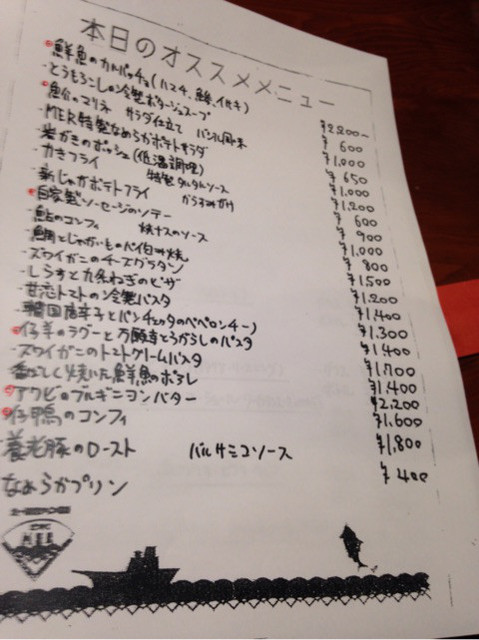 本日のオススメメニュー
鮮魚のカルパッチョ(ハマチ、鯵、イサキ) ¥2,200〜
・とうもろこしの冷製ポタージュスープ ¥600
魚介のマリネ サラダ仕立て バジル風味 ¥1,000
・MER特製なめらかポテトサラダ ¥650
・岩がきのポッシェ(低温調理) ¥1,000
・カキフライ 特製タルタルソース ¥1,200
・新じゃがポテトフライ からすみがけ ¥600
自家製ソーセージのソテー ¥900
・鮎のコンフィ 焼ナスのソース ¥1,000
・鯛とじゃがいものパイ包み焼 ¥800
・ズワイガニのチーズグラタン ¥1,500
・しらすと九条ねぎのピザ ¥1,200
・甘恋トマトの冷製パスタ ¥1,400
・韓国唐辛子とパンチェッタのペペロンチーノ ¥1,300
仔羊のラグーと万願寺とうがらしのパスタ ¥1,400
・ズワイガニのトマトクリームパスタ ¥1,700
香ばしく焼いた鮮魚のポアレ ¥1,400
アワビのブルギニヨンバター ¥2,200
仔鴨のコンフィ ¥1,600
養老豚のロースト バルサミコソース ¥1,800
なめらかプリン ¥400
MER